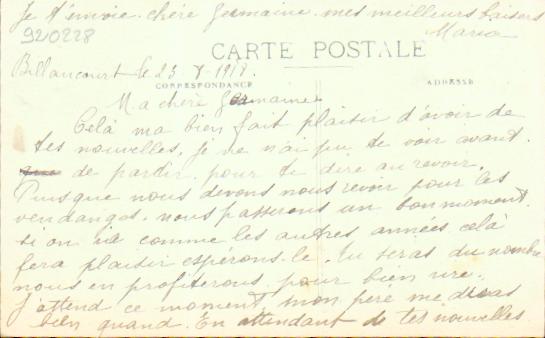 Je t'envoie chère Germaine mes meilleurs baisers
Maria
920228
CARTE POSTALE
Billancourt le 23 7 1918.
CORRESPONDANCE
ADRESSE
Ma chère Germaine
Celà ma bien fait plaisir d'avoir de
tes nouvelles. je ne n'ai pu te voir avant
de partir pour te dire au revoir.
Puisque nous devons nous revoir pour les
vendanges. nous passerons un bon moment.
si on va comme les autres années celà
fera plaisir espérons-le. Tu seras du nombre
nous en profiterons pour bien rire.
J'attend ce moment mon père me diras
bien quand. En attendant de tes nouvelles